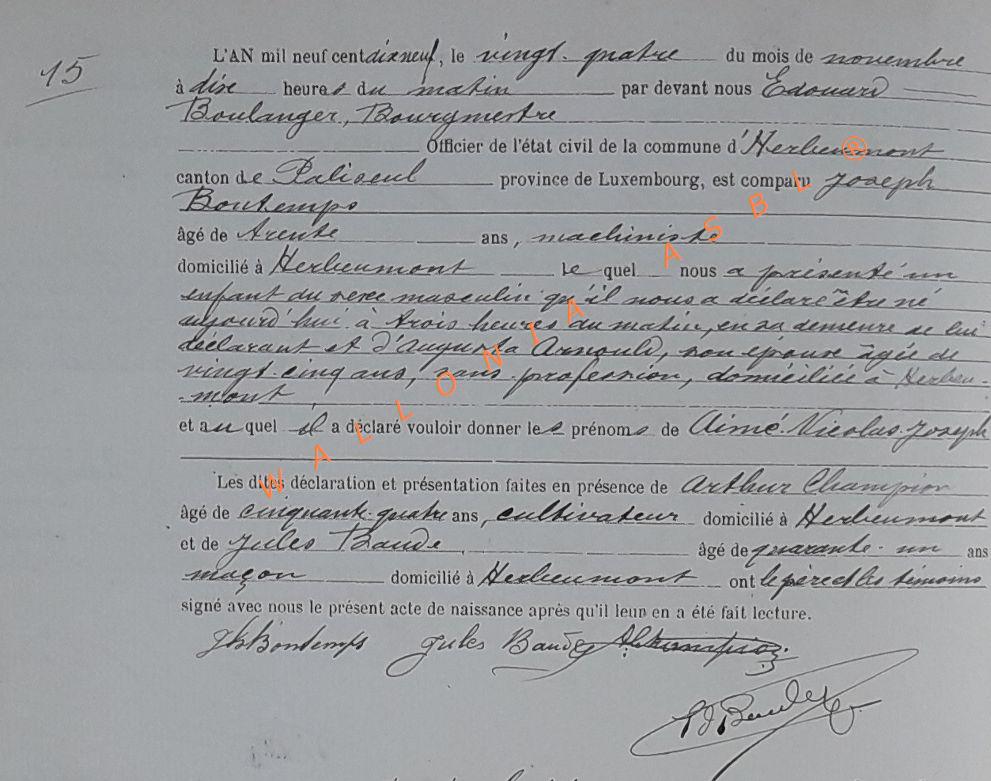 15
L'AN mil neuf cent dix neuf, le vingt-quatre du mois de novembre
à dix heures du matin par devant nous Edouard
Boulanger, Bourgmestre
Officier de l'état civil de la commune d'Herbeumont
canton de Paliseul province de Luxembourg, est comparu Joseph
Bontemps
âgé de trente ans, machiniste
domicilié à Herbeumont le quel nous a présenté un
enfant du sexe masculin qu'il nous a déclaré être né
aujourd'hui à trois heures du matin, en sa demeure de lui
déclarant et d'Augusta Arnould, son épouse âgée de
vingt-cinq ans, sans profession, domiciliée à Herbeu-
-mont
et au quel il a déclaré vouloir donner les prénoms de Aimé-Nicolas-Joseph
Les dites déclaration et présentation faites en présence de Arthur Champion
âgé de cinquante-quatre ans, cultivateur domicilié à Herbeumont
et de Jules Baude âgé de quarante-un ans
maçon domicilié à Herbeumont ont le père et les témoins
signé avec nous le présent acte de naissance après qu'il leur en a été fait lecture.
Bontemps Jules Baude Champion
WALLONIA ASBL ®